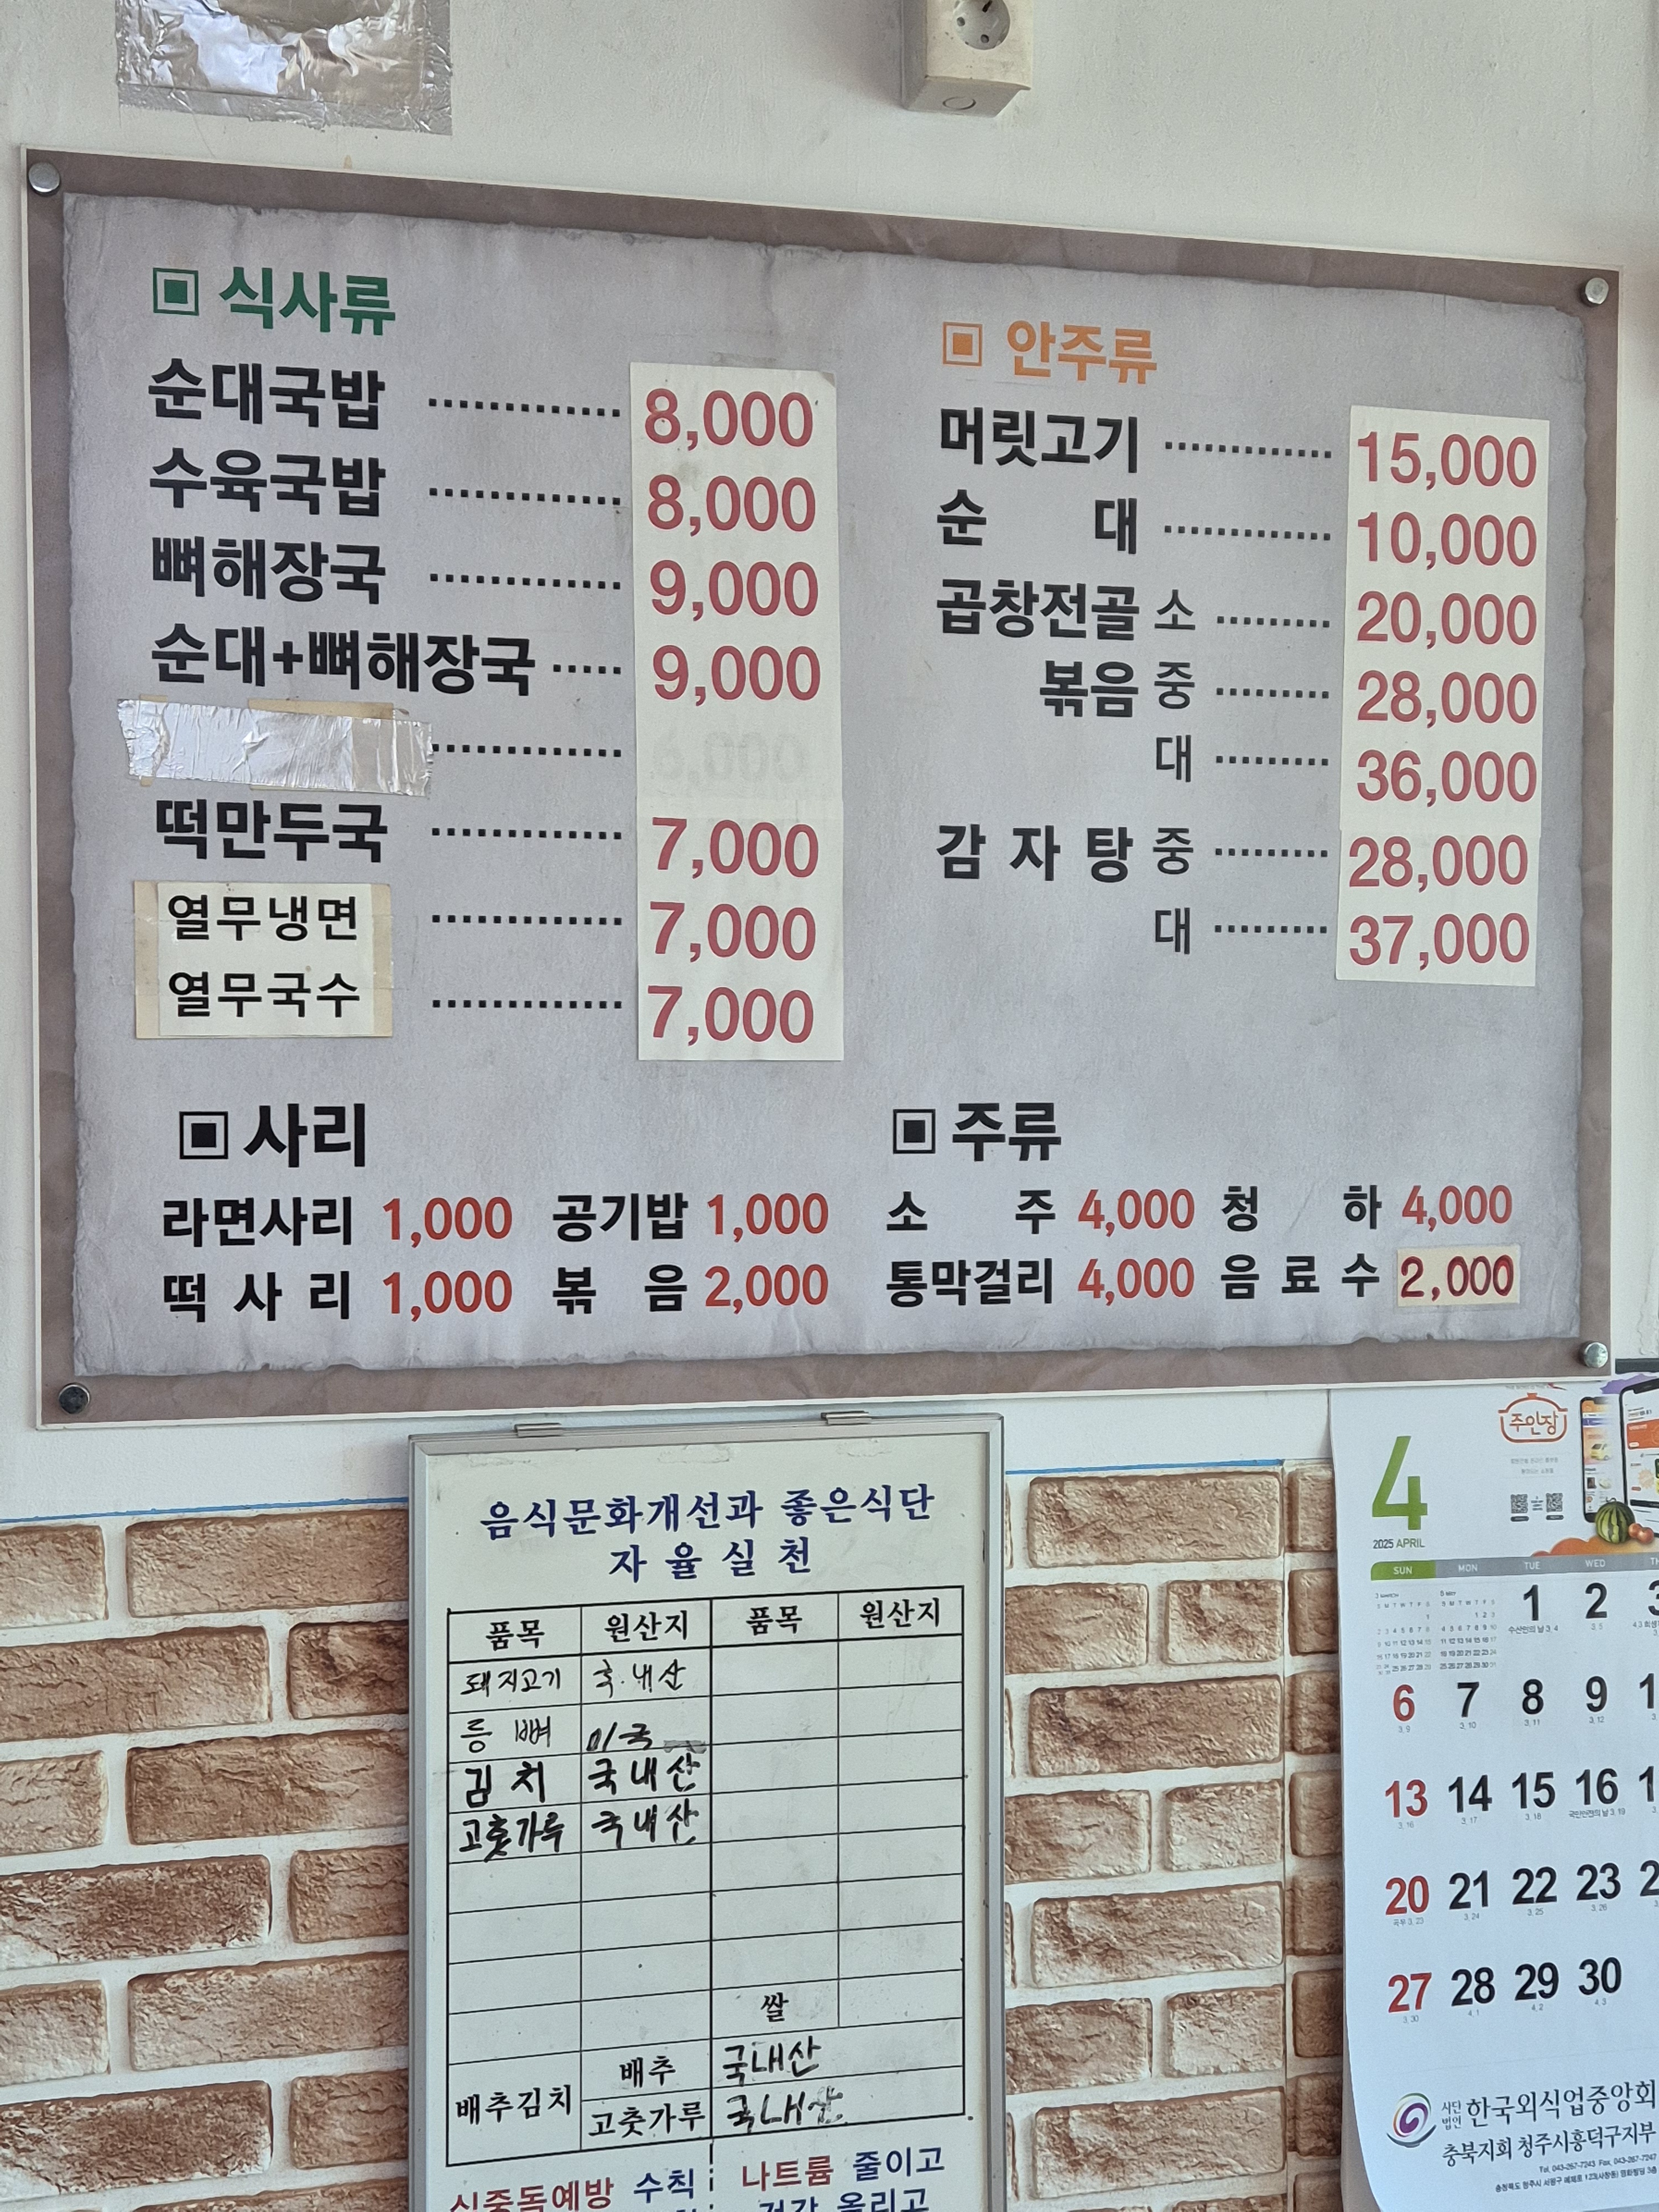 식사류
순대국밥 ............. 8,000
수육국밥 ............. 8,000
뼈해장국 ............. 9,000
순대+뼈해장국 ..... 9,000
떡만두국 ............. 7,000
열무냉면 ............. 7,000
열무국수 ............. 7,000
안주류
머릿고기 ............. 15,000
순 대 ............. 10,000
곱창전골 소 ......... 20,000
볶음 중 ......... 28,000
대 ......... 36,000
감 자 탕 중 ......... 28,000
대 ......... 37,000
사리
라면사리 1,000 공기밥 1,000
떡 사 리 1,000 볶 음 2,000
주류
소 주 4,000 청 하 4,000
통막걸리 4,000 음 료 수 2,000
음식문화개선과 좋은식단
자 율 실 천
품목 원산지 품목 원산지
돼지고기 국내산
등 뼈 미국
김 치 국내산
고춧가루 국내산
쌀
배추김치 배추 국내산
고춧가루 국내산
식중독예방 수칙
나트륨 줄이고
건강 올리고
주인장
4
2025 APRIL
SUN MON TUE WED
1 2 3
수산인의 날 3, 4 3, 5
6 7 8 9
3, 9 3, 10 3, 11 3, 12
13 14 15 16
3, 16 3, 17 3, 18 국민안전의 날 3, 19
20 21 22 23
곡우 3, 23 3, 24 3, 25 3, 26
27 28 29 30
3, 30 4, 1 4, 2 4, 3
사단법인 한국외식업중앙회
충북지회 청주시흥덕구지부
Tel. 043-267-7243